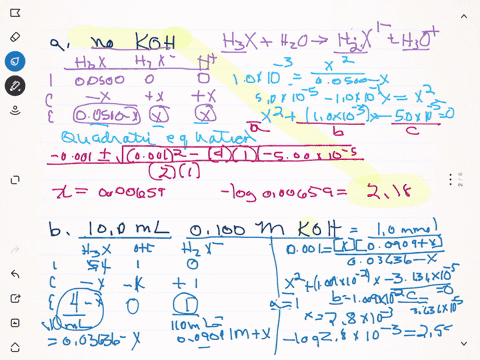 a. no KOH H₃X + H₂O → H₂X¹⁻ + H₃O⁺
H₃X H₂X⁻ H⁺
I 0.0500 0 0
C -x +x +x
E 0.0500-x x x
1.0×10⁻³ = x² / 0.0500-x
5.0×10⁻⁵ - 1.0×10⁻³x = x²
x² + (1.0×10⁻³)x - 5.0×10⁻⁵ = 0
a b c
Quadratic equation
-0.001 ± √(0.001)² - (4)(1)(-5.00×10⁻⁵)
(2)(1)
x = 0.00659 -log 0.00659 = 2.18
b. 10.0 mL 0.100 M KOH = 1.0 mmol
H₃X OH⁻ H₂X⁻
I 1 0
C -x -x +1
E 4-x 0 1
110 mL 110 mL
= 0.03636-x 0.00909 M+x
0.001 = [x][0.00909+x]
0.03636-x
x² + (1.009×10⁻²)x - 3.636×10⁻⁵ = 0
a=1 b=1.009×10⁻² c=
3.636×10⁻⁵
x = 2.8×10⁻³
-log 2.8×10⁻³ =